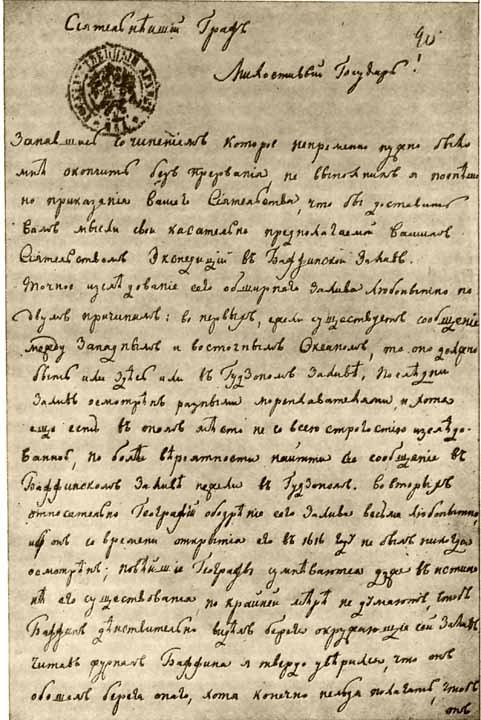 Сіятельнѣйшій Графъ
Милостивый Государь!
Занявшись сочиненіемъ которое непременно нужно было
мнѣ окончить безъ прерванія не выполнилъ я поспѣшно
приказанія Вашего Сіятельства, что бы доставить
Вамъ мысли свои касательно предполагаемой Вашимъ
Сіятельствомъ Экспедиціи въ Баффинской Заливъ.
Точное изслѣдованіе сего обширнаго Залива любопытно по
двумъ причинамъ: во первыхъ, ежели существуетъ сообщеніе
между Западнымъ и восточнымъ Океаномъ, то оно должно
быть или здѣсь или въ Гудзономъ Заливѣ, Послѣдній
Заливъ осмотрѣнъ разными мореплавателями, и хотя
еще есть въ ономъ мѣсто не со всею строгостію изслѣдо-
ванное, но болѣе вѣроятности найти сіе сообщеніе въ
Баффинскомъ Заливѣ нежели въ Гудзономъ. Во вторыхъ
относительно Географіи обозрѣніе сего Залива весьма любопытно,
ибо онъ со времени открытія его въ 1616 году не былъ никогда
осмотрѣнъ; новѣйшіе Географы сумнѣваются даже въ истинѣ
его существованія по крайней мѣрѣ не думаютъ, чтобъ
Баффинъ дѣйствительно видѣлъ берега окружающіе сей Заливъ
читавъ журналъ Баффина я твердо увѣрился, что онъ
обошелъ берега онаго, хотя конечно нельзя полагать, чтобъ
онъ